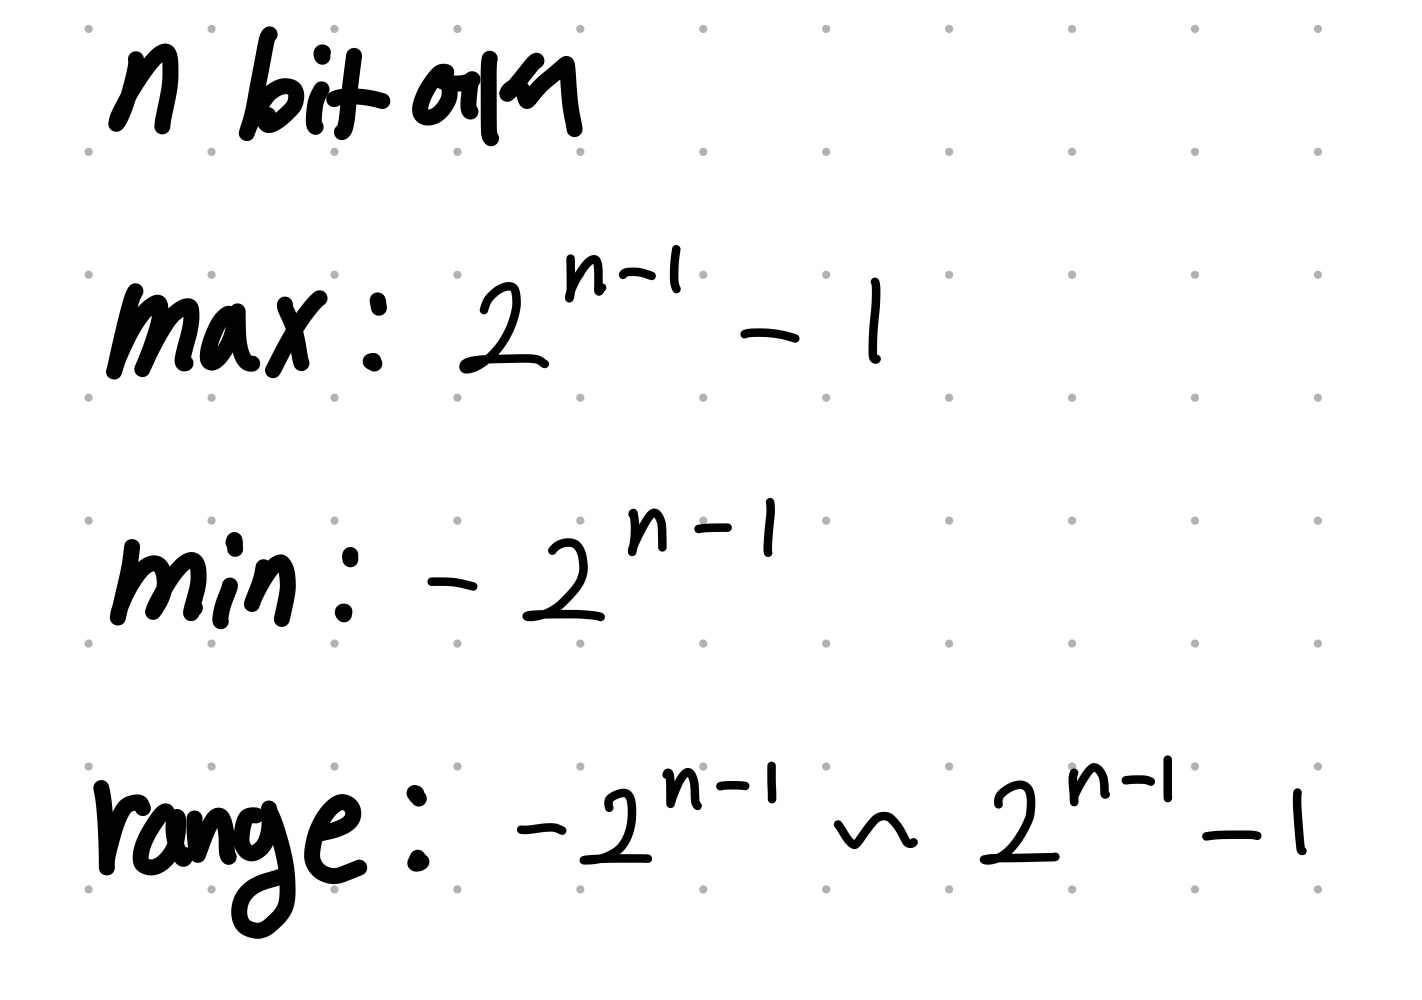 n bit에서
max: 2^{n-1} - 1
min: -2^{n-1}
range: -2^{n-1} ~ 2^{n-1} - 1